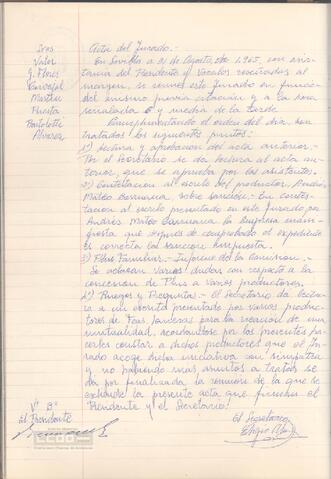 Sres
Valor
G. Flores
Carvajal
Martin
Huerta
Bartolotti
Alvarez
Acta del Jurado.-
En Sevilla a 31 de Agosto de 1965, con asis-
tencia del Presidente y Vocales reseñados al
margen, se reune este Jurado en funcion
del mismo previa citación y a la hora
señalada 6 y media de la tarde
Cumplimentando el orden del dia son
tratados los siguientes puntos:
1º) Lectura y aprobación del acta anterior.-
Por el Secretario se da lectura al acta an-
terior, que se aprueba por los asistentes.
2º) Contestacion al escrito del productor, Andrés
Mateo Carmona sobre sanción.- En contes-
tacion al escrito presentado en este Jurado por
Andrés Mateo Carmona la Empresa mani-
fiesta que despues de comprobado el expediente
es correcta la sancion impuesta.
3º) Plus Familiar.- Informe de la Comision.-
Se aclaran varias dudas con respecto a la
concesion de Plus a varios productores.
4º) Ruegos y Preguntas.- El Secretario da lectu-
ra a un escrito presentado por varios produc-
tores de para la creacion de una
mutualidad, acordandose por los presentes ha-
cerles constar a dichos productores que el Ju-
rado acoge dicha iniciativa con simpatia
y no habiendo mas asuntos a tratar se
da por finalizada la reunion de la que se
extiende la presente acta que firman el
Presidente y el Secretario.
Vº Bº
El Presidente
El Secretario
CCOO